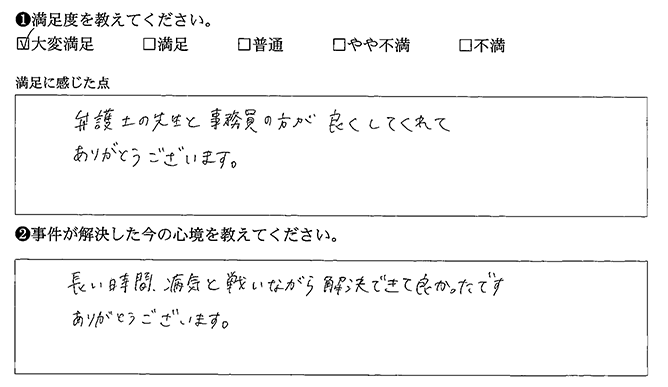 ❶満足度を教えてください。
☑大変満足 □満足 □普通 □やや不満 □不満
満足に感じた点
弁護士の先生と事務員の方が良くしてくれて
ありがとうございます。
❷事件が解決した今の心境を教えてください。
長い時間、病気と戦いながら解決できて良かったです
ありがとうございます。